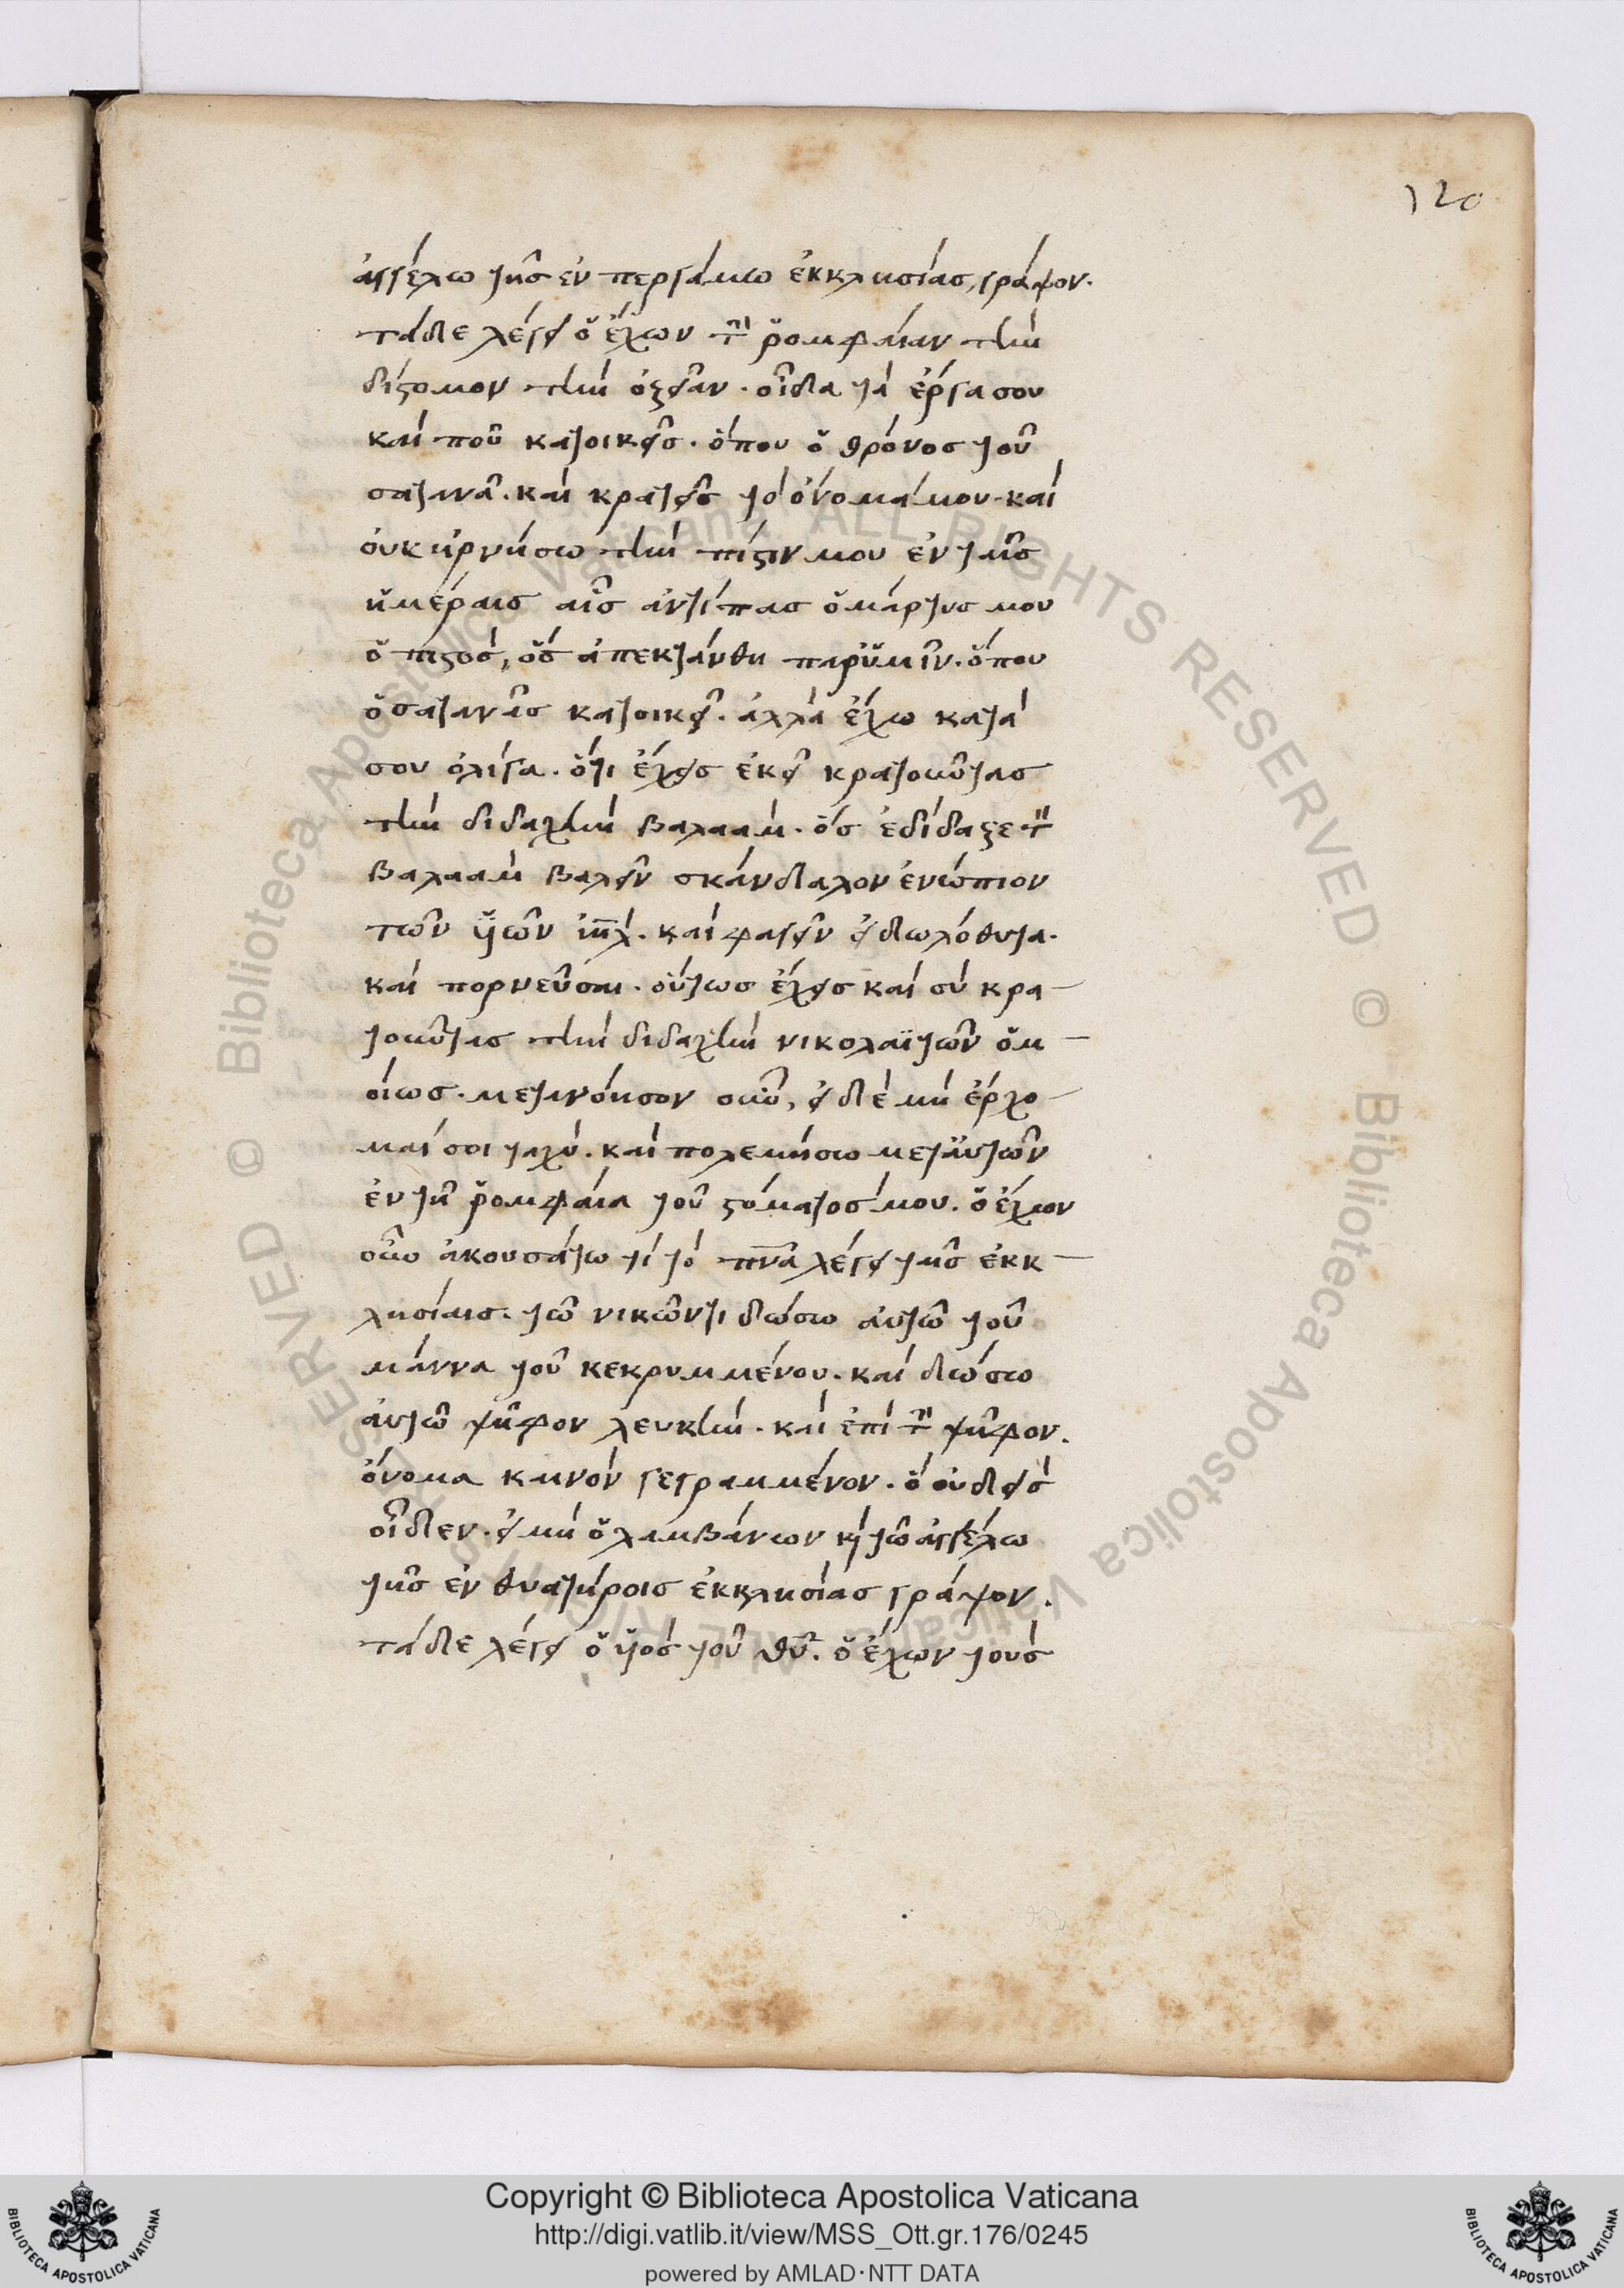 120
ἀγγέλω τῆς ἐν περγάμω ἐκκλησίας, γράψον·
τάδε λέγει ὁ ἔχων τὴν ῥομφαίαν τὴν
δίστομον τὴν ὀξεῖαν· οἶδα τὰ ἔργα σου
καὶ ποῦ κατοικεῖς· ὅπου ὁ θρόνος τοῦ
σατανᾶ· καὶ κρατεῖς τὸ ὄνομά μου· καὶ
οὐκ ἠρνήσω τὴν πίστιν μου ἐν ταῖς
ἡμέραις αἷς ἀντίπας ὁ μάρτυς μου
ὁ πιστός, ὃς ἀπεκτάνθη παρ' ὑμῖν· ὅπου
ὁ σατανᾶς κατοικεῖ· ἀλλὰ ἔχω κατὰ
σου ὀλίγα· ὅτι ἔχεις ἐκεῖ κρατοῦντας
τὴν διδαχὴν βαλαάμ· ὃς ἐδίδαξε τὸν
βαλαὰμ βαλεῖν σκάνδαλον ἐνώπιον
τῶν υἱῶν ἰηλ· καὶ φαγεῖν εἰδωλόθυτα·
καὶ πορνεῦσαι· οὕτως ἔχεις καὶ σὺ κρα
τοῦντας τὴν διδαχὴν νικολαϊτῶν ὁμ
οίως· μετανόησον οὖν, εἰ δὲ μὴ ἔρχο
μαί σοι ταχύ· καὶ πολεμήσω μετ' αὐτῶν
ἐν τῇ ῥομφαία τοῦ στόματός μου· ὁ ἔχων
οὖς ἀκουσάτω τί τὸ πνᾶ λέγει ταῖς ἐκκ
λησίαις· τῶ νικῶντι δώσω αὐτῶ τοῦ
μάννα τοῦ κεκρυμμένου· καὶ δώσω
αὐτῶ ψῆφον λευκήν· καὶ ἐπὶ τὴν ψῆφον·
ὄνομα καινὸν γεγραμμένον· ὃ οὐδεὶς
οἶδεν· εἰ μὴ ὁ λαμβάνων καὶ τῶ ἀγγέλω
τῆς ἐν θυατήροις ἐκκλησίας γράψον·
τάδε λέγει ὁ υἱὸς τοῦ θῦ· ὁ ἔχων τοὺς
© Biblioteca Apostolica Vaticana ALL RIGHTS RESERVED
© Biblioteca Apostolica Vaticana ALL RIGHTS RESERVED
Copyright © Biblioteca Apostolica Vaticana
http://digi.vatlib.it/view/MSS_Ott.gr.176/0245
powered by AMLAD·NTT DATA
BIBLIOTECA APOSTOLICA VATICANA
BIBLIOTECA APOSTOLICA VATICANA